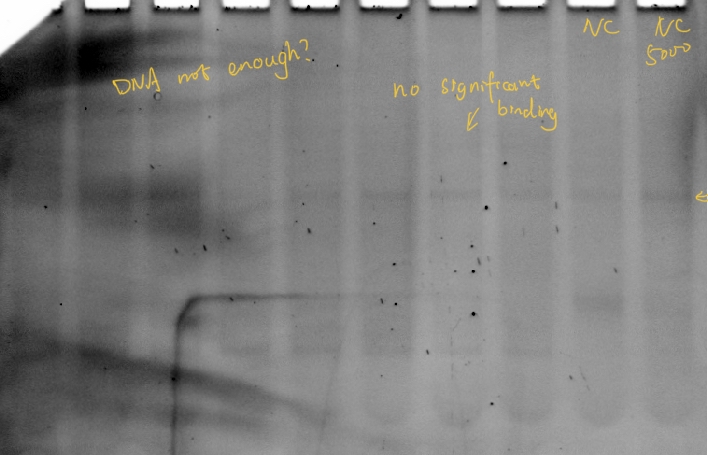 NC
NC
5000
DNA not enough?
no significant
binding